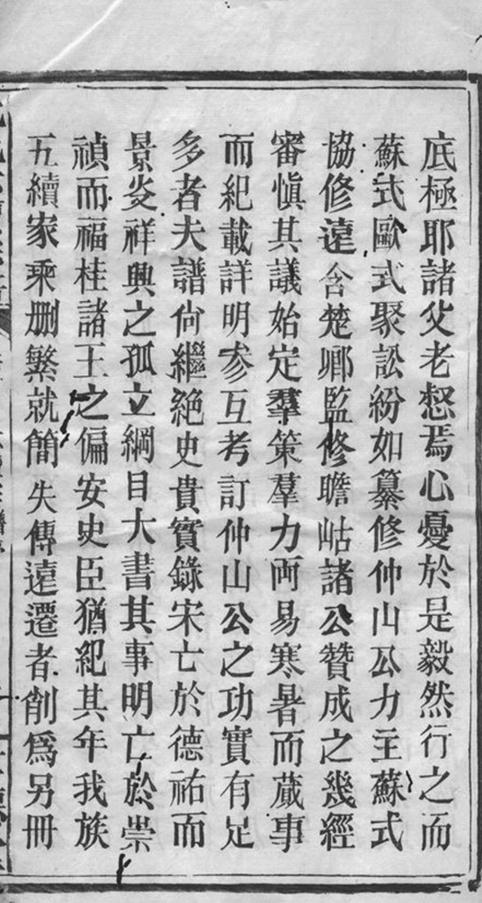 底極耶諸父老惄焉心憂於是毅然行之而
蘇式歐式聚訟紛如纂修仲山公力主蘇式
協修遠含楚卿監修瞻岵諸公贊成之幾經
審慎其議始定羣策羣力両易寒暑而蕆事
而紀載詳明參互考訂仲山公之功實有足
多者夫譜尙繼絕史貴實錄宋亡於德祐而
景炎祥興之孤立綱目大書其事明亡於崇
禎而福桂諸王之偏安史臣猶紀其年我族
五續家乘删繁就簡失傳遠遷者削爲另冊